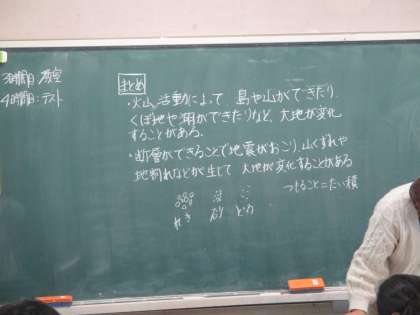 3時間目:教室
4時間目:テスト
まとめ
・火山活動によって 島や山ができたり、
くぼ地や湖ができたりなど、大地が変化
することがある。
・断層ができることで地震がおこり、山くずれや
地割れなどが生じて 大地が変化することがある
つもること=たい積
れき 砂 どろ